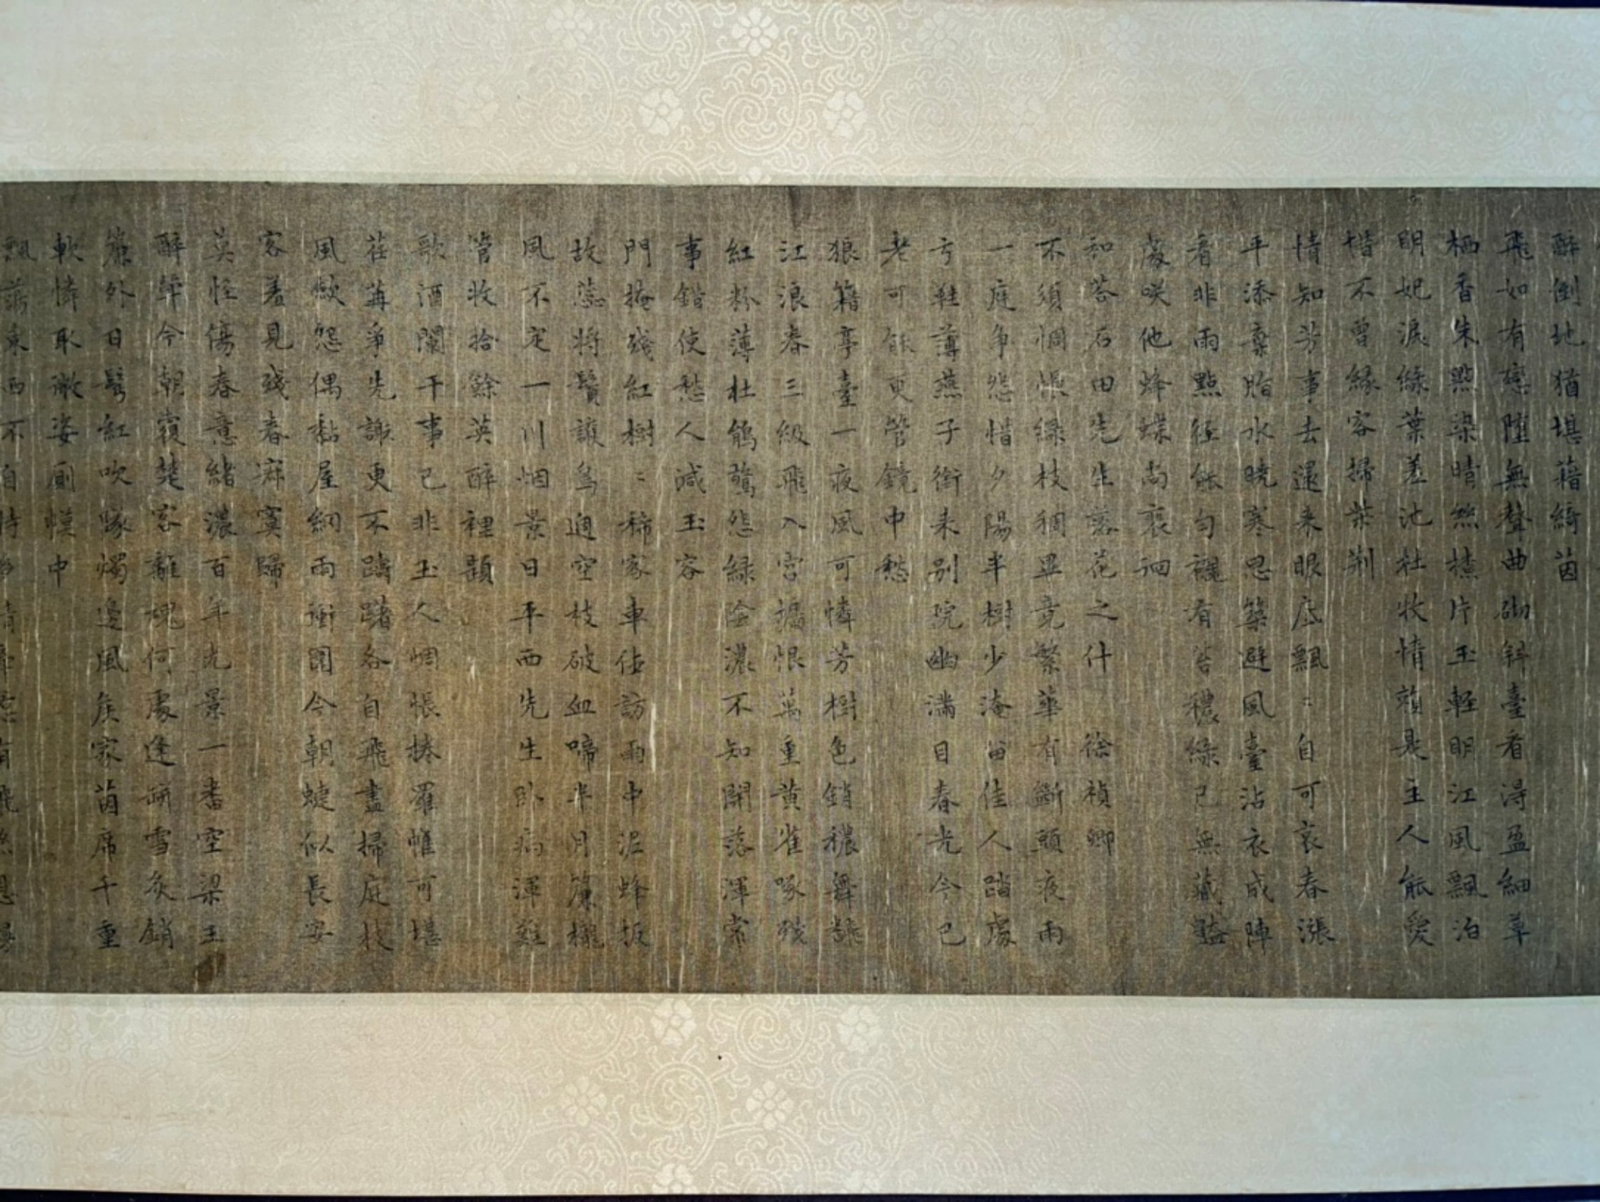 醉倒地猶堪藉綺茵
飛如有戀墮無聲曲砌斜臺看淂盈細草
栖香朱點染晴絲撲片玉輕明江風飄泊
明妃淚綠葉差池杜牧情賴是主人能愛
惜不曾緣客掃柴荆
情知芳事去還来眼底飄〻自可哀春漲
平添棄脂水曉寒思築避風臺沾衣成陣
看非雨點徑能勻襯有苔穠綠已無藏艷
處咲他蜂蝶尚裵徊
和荅石田先生落花之什 徐禎卿
不須惆悵綠枝稠畢竟繁華有斷頭夜雨
一庭争怨惜夕陽半樹少淹留佳人踏處
弓鞋薄燕子銜来别院幽滿目春光今已
老可能更管鏡中愁
狼籍亭臺一夜風可憐芳樹色銷穠舞謝
江浪春三級飛入宫牆恨萬重黄雀啄殘
紅粉薄杜鵑驚怨綠陰濃不知開落渾常
事錯使愁人減玉容
門掩殘紅樹〻稀客車伍訪雨中泥蜂扳
故蕊將鬚護鳥過空枝破血啼半月簾櫳
風不定一川烟景日平西先生卧病渾難
管收拾餘英醉裡題
歌酒闌干事已非玉人惆悵捲羅帷可堪
荏苒爭先謝更不躊躇各自飛盡掃庭枝
風歇怨偶黏屋網雨銜圍今朝蜨似長安
客羞見殘春寂寞歸
莫怪傷春意緒濃百年光景一番空梁王
醉醒今朝寢楚客離魂何處逢硏雪炙銷
簾外日髩紅吹啄燭邊風矦家茵席千重
軟憐取㣲姿厠幙中